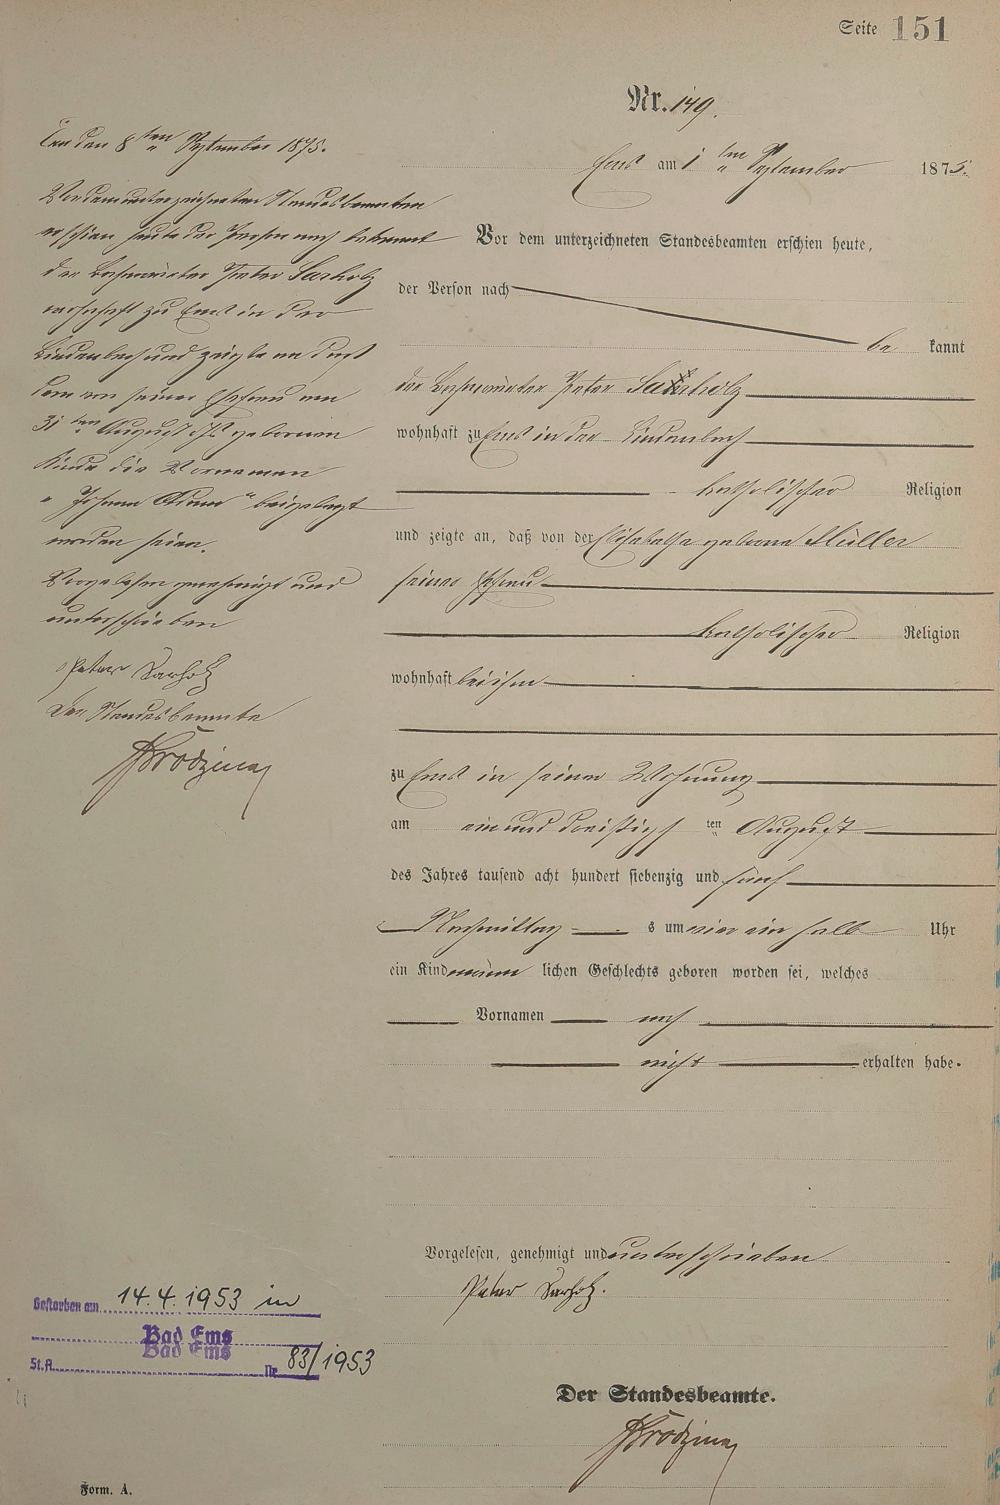 Seite 151
Nr. 149.
Ems am 1 ten September 1875.
Vor dem unterzeichneten Standesbeamten erschien heute,
der Person nach
be kannt
der Peter Sarholz
wohnhaft zu Ems in der Lindenbach
katholischer Religion
und zeigte an, daß von der Elisabetha geborne Müller
seiner Ehefrau
katholischer Religion
wohnhaft bei ihm
zu Ems in seiner Wohnung
am ein und dreißigsten August
des Jahres tausend acht hundert siebenzig und fünf
Nachmittags um vier ein halb Uhr
ein Kind männlichen Geschlechts geboren worden sei, welches
Vornamen noch
nicht erhalten habe.
Vorgelesen, genehmigt und unterschrieben
Peter Sarholz.
Der Standesbeamte.
Ems den 8ten September 1875.
Vor dem unterzeichneten Standesbeamten
erschien heute der Person nach bekannt
der Peter Sarholz
wohnhaft zu Ems in der
Lindenbach und zeigte an daß
dem von seiner Ehefrau am
31ten August d. Js. gebornen
Kinde die Vornamen
"Johann " beigelegt
worden seien.
Vorgelesen genehmigt und
unterschrieben
Peter Sarholz
Der Standesbeamte
Gestorben am 14.4.1953 in
Bad Ems
Bad Ems
St.A. Nr. 83/1953
Form. A.